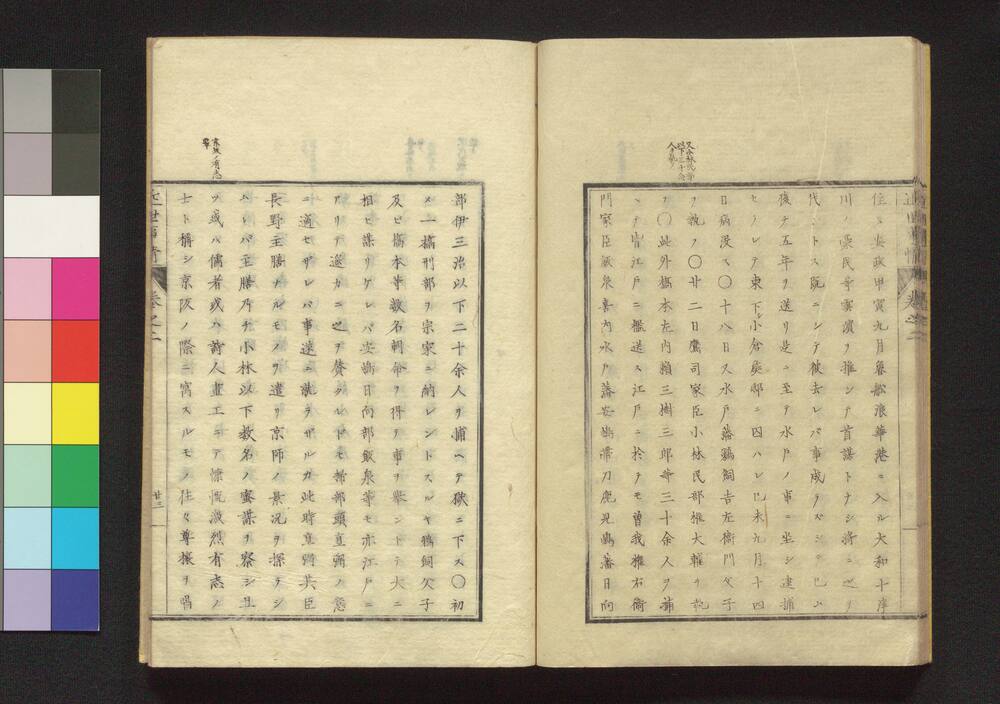 住ス安政甲寅九月魯船浪華港ニ入ル大和十津
川ノ郷民等雲濱ヲ推シテ首謀トナシ将ニ之ヲ
代ントス既ニシテ彼去レバ事成ラズシテ已ム
後チ五年ヲ送リ是ニ至テ水戸ノ事ニ坐シ逮捕
セラレテ東下シ小倉矦邸ニ囚ハレ己未九月十四
日病没ス〇十八日又水戸藩鵜飼吉左衛門父子
ヲ執フ〇廿二日鷹司家臣小林民部権大輔ヲ執
フ〇此外橋本左内頼三樹三郎等三十余人ヲ捕
ヘテ皆江戸ニ檻送ス江戸ニ於テモ曽我権右衛
門家臣飯泉喜内水戸藩安嶋帯刀鹿児島藩日向
部伊三治以下二十余人ヲ捕ヘテ獄ニ下ス〇初
メ一橋刑部ヲ宗家ニ納レントスルヤ鵜飼父子
及ビ橋本等数名朝命ヲ得テ事ヲ挙ントテ大ニ
相ヒ謀リケレバ安嶋日向部飯泉等モ亦江戸ニ
アリテ遥カニ之ヲ賛タレドモ掃部頭直弼ノ意
ニ適セザレバ事遂ニ就ラザルガ此時直弼其臣
長野主膳ナルモノヲ遣リ京師ノ景況ヲ探ラシ
ムレバ主膳乃チ小林以下数名ノ密謀ヲ察シ且
ツ或ハ儒者或ハ詩人畫工ニテ慷慨激烈有志ノ
士ト稱シ京阪ノ際ニ寓スルモノ往々尊攘ヲ唱
近世事情 巻之二
廿三
京坂ノ有志